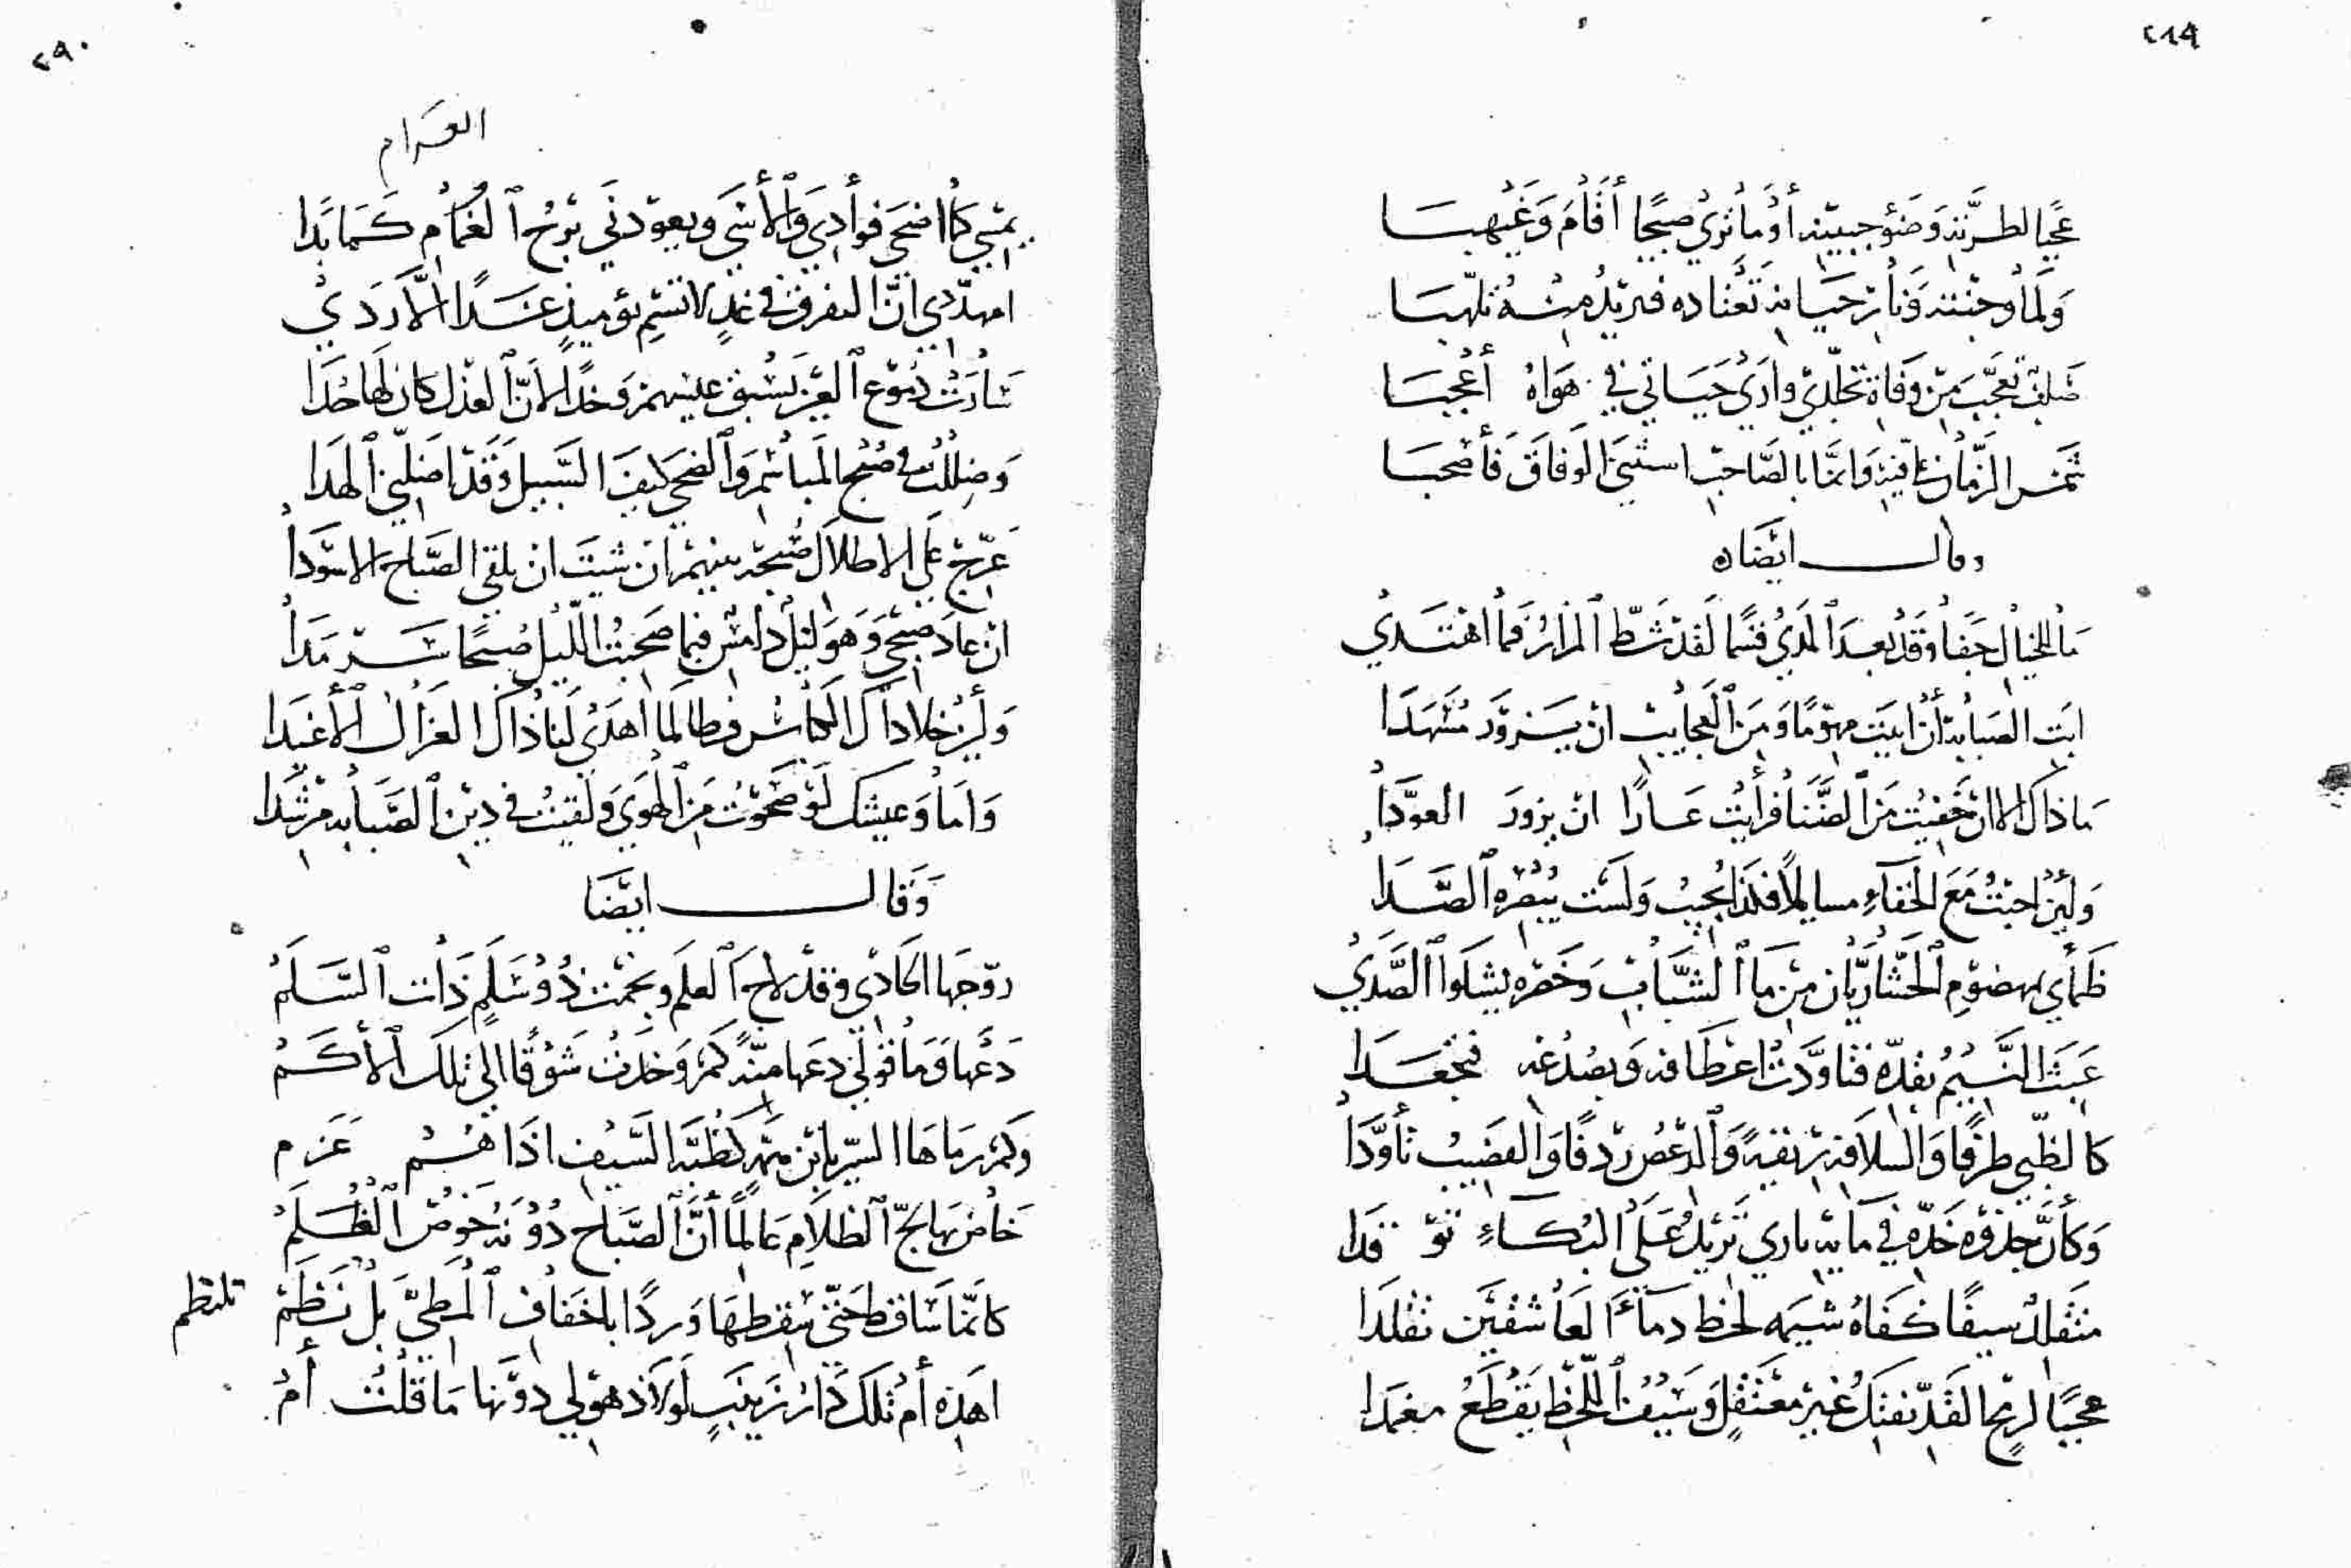 ٢٨٩
عجبا لطرته وضوء جبينه أو ما ترى صبحا أقام وغيهبا
ولما وجنته ونار حيائه تعتاده فيزيد منه تلهبا
صلف تعجب من وفاة تجلدي وارى حياتي في هواه أعجبا
شمس الزمان وانما بالصاحب استثنى الوفاق فأصحبا
وقال ايضا
ما للخيال جفا وقد بعد المدى قسما لقد شط المزار فما اهتدي
ابت الصبابة أن ابيت مهوما ومن العجايب ان يزور مسهدا
ما ذاك الا ان خفيت من الضنا فرأيت عارا ان يزور العودا
ولئن اجبت مع الخفاء مسايلا فلذا يجيب ولست تبصره الصدا
ظمأي بهضوم الحشا ريان من ما الشباب وخصره يشكوا الصدي
عبث النسيم بقده فتاودت اعطافه وبصدغه فتجعدا
كالظبي طرفا والسلافة ريقة والدعص ردفا والقضيب تأودا
وكأن جذوة خده في مايه ناري تزيد على البكاء توقدا
متقلد سيفا كفاه شيمه لحظ دماء العاشقين تقلدا
عجبا لرمح القد يفتك غير معتقل وسيف اللحظ يقطع مغمدا
٢٩٠
الغرام
يمسي كما اضحى فوادي والأسى ويعودني برح الغرام كما بدا
امهددي ان التفرق في غد لا تسم يومئذ غدا الا ردي
سارت دموع العين تسبق عيسهم وخدا لان العذل كان لها حدا
وضللت في صبح المباسم والضحى كيف السبيل وقد اضلني الهدا
عرج على الاطلال صبحة بينهم ان شيت ان يلقى الصباح الاسودا
ان عاد صبحي وهو ليل دامس فبما صحبت الليل صبحا سرمدا
ولئن خلا ذاك الكناس فطالما اهدى لنا ذاك الغزال الأغيدا
واما وعيشك لو صحوت من الهوى ولقيت في دين الصبابة مرشدا
وقال ايضا
روجها الحادي وقد لاح العلم ويممت ذو سلم ذات السلم
دعها وما قولي دعها منة كم وخدت شوقا الى تلك الأكم
وكم رماها السير بابن مهمه كظبة السيف اذا هم عزم
خاض بها لج الظلام عالما أن الصباح دونه خوض الظلم
كانما ساقط حتى سقطها وردا باخفاف المطي بل نظم
تلتظم
اهذه أم تلك دار زينب لولا ذهولي دونها ما قلت أم